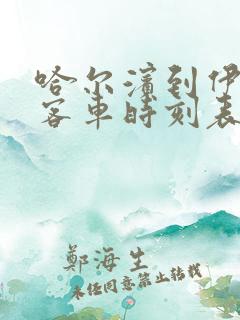 哈尔滨到伊
客车时刻表
郑海生
未经同意禁止转载